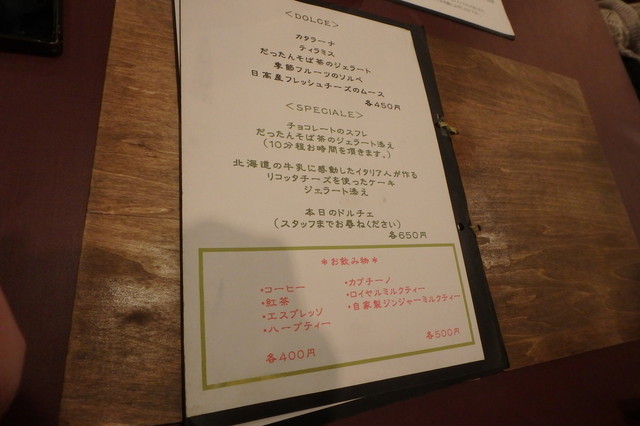 <DOLCE>
カタラーナ
ティラミス
だったんそば茶のジェラート
季節フルーツのソルベ
日高産フレッシュチーズのムース
各450円
<SPECIALE>
チョコレートのスフレ
だったんそば茶のジェラート添え
(10分程お時間を頂きます。)
北海道の牛乳に感動したイタリア人が作る
リコッタチーズを使ったケーキ
ジェラート添え
本日のドルチェ
(スタッフまでお尋ねください)
各650円
*お飲み物*
・コーヒー
・紅茶
・エスプレッソ
・ハーブティー
各400円
・カプチーノ
・ロイヤルミルクティー
・自家製ジンジャーミルクティー
各500円